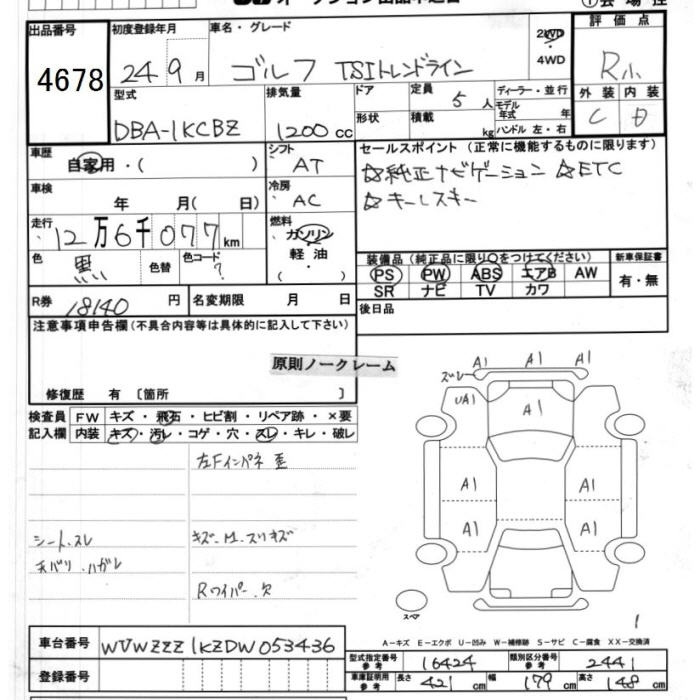 オークション出品申込書
①会場控
出品番号 初度登録年月 車名・グレード 2WD 評価点
4678 24 9月 ゴルフ TSIトレンドライン ・ 4WD R小
型式 排気量 ドア 定員 5人 ディーラー・並行 外装 内装
形状 積載 kg モデル年式 年 C D
DBA-1KCBZ 1200cc ハンドル 左・右
車歴 シフト セールスポイント(正常に機能するものに限ります)
自家用・( ) AT ☆純正ナビゲーション ☆ETC
車検 冷房 ☆キーレスキー
年 月( 日) AC
走行 燃料
12万6千077km ガソリン
軽油
装備品(純正品に限り○をつけてください) 新車保証書
色 黒 色替 色コード ? PS PW ABS エアB AW 有・無
SR ナビ TV カワ
R券 18140円 名変期限 月 日 後日品
注意事項申告欄(不具合内容等は具体的に記入して下さい)
原則ノークレーム
修復歴 有〔箇所 〕
検査員 FW キズ・飛石・ヒビ割・リペア跡・×要
記入欄 内装 キズ・汚レ・コゲ・穴・スレ・キレ・破レ
左Fインパネ 歪
シート.スレ キズ.M.スリキズ
天バリ.ハガレ
Rワイパー.欠
A1 A1 A1
ズレ
UA1 A1
A1 A1
A1 A1
スペア
1
A-キズ E-エクボ U-凹み W-補修跡 S-サビ C-腐食 XX-交換済
車台番号 WVWZZZ1KZDW053436
型式指定番号 参考 16424 類別区分番号 参考 2441
登録番号 車庫証明用 参考 長さ 421cm 幅 179cm 高さ 148cm